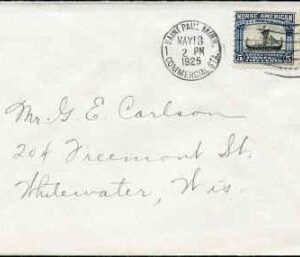 SAINT PAUL, MINN.
MAY 18
2 PM
1925
COMMERCIAL STA.
1
NORSE-AMERICAN
5 5
Mr. G. E. Carlson
204 Freemont St.
Whitewater, Wis.